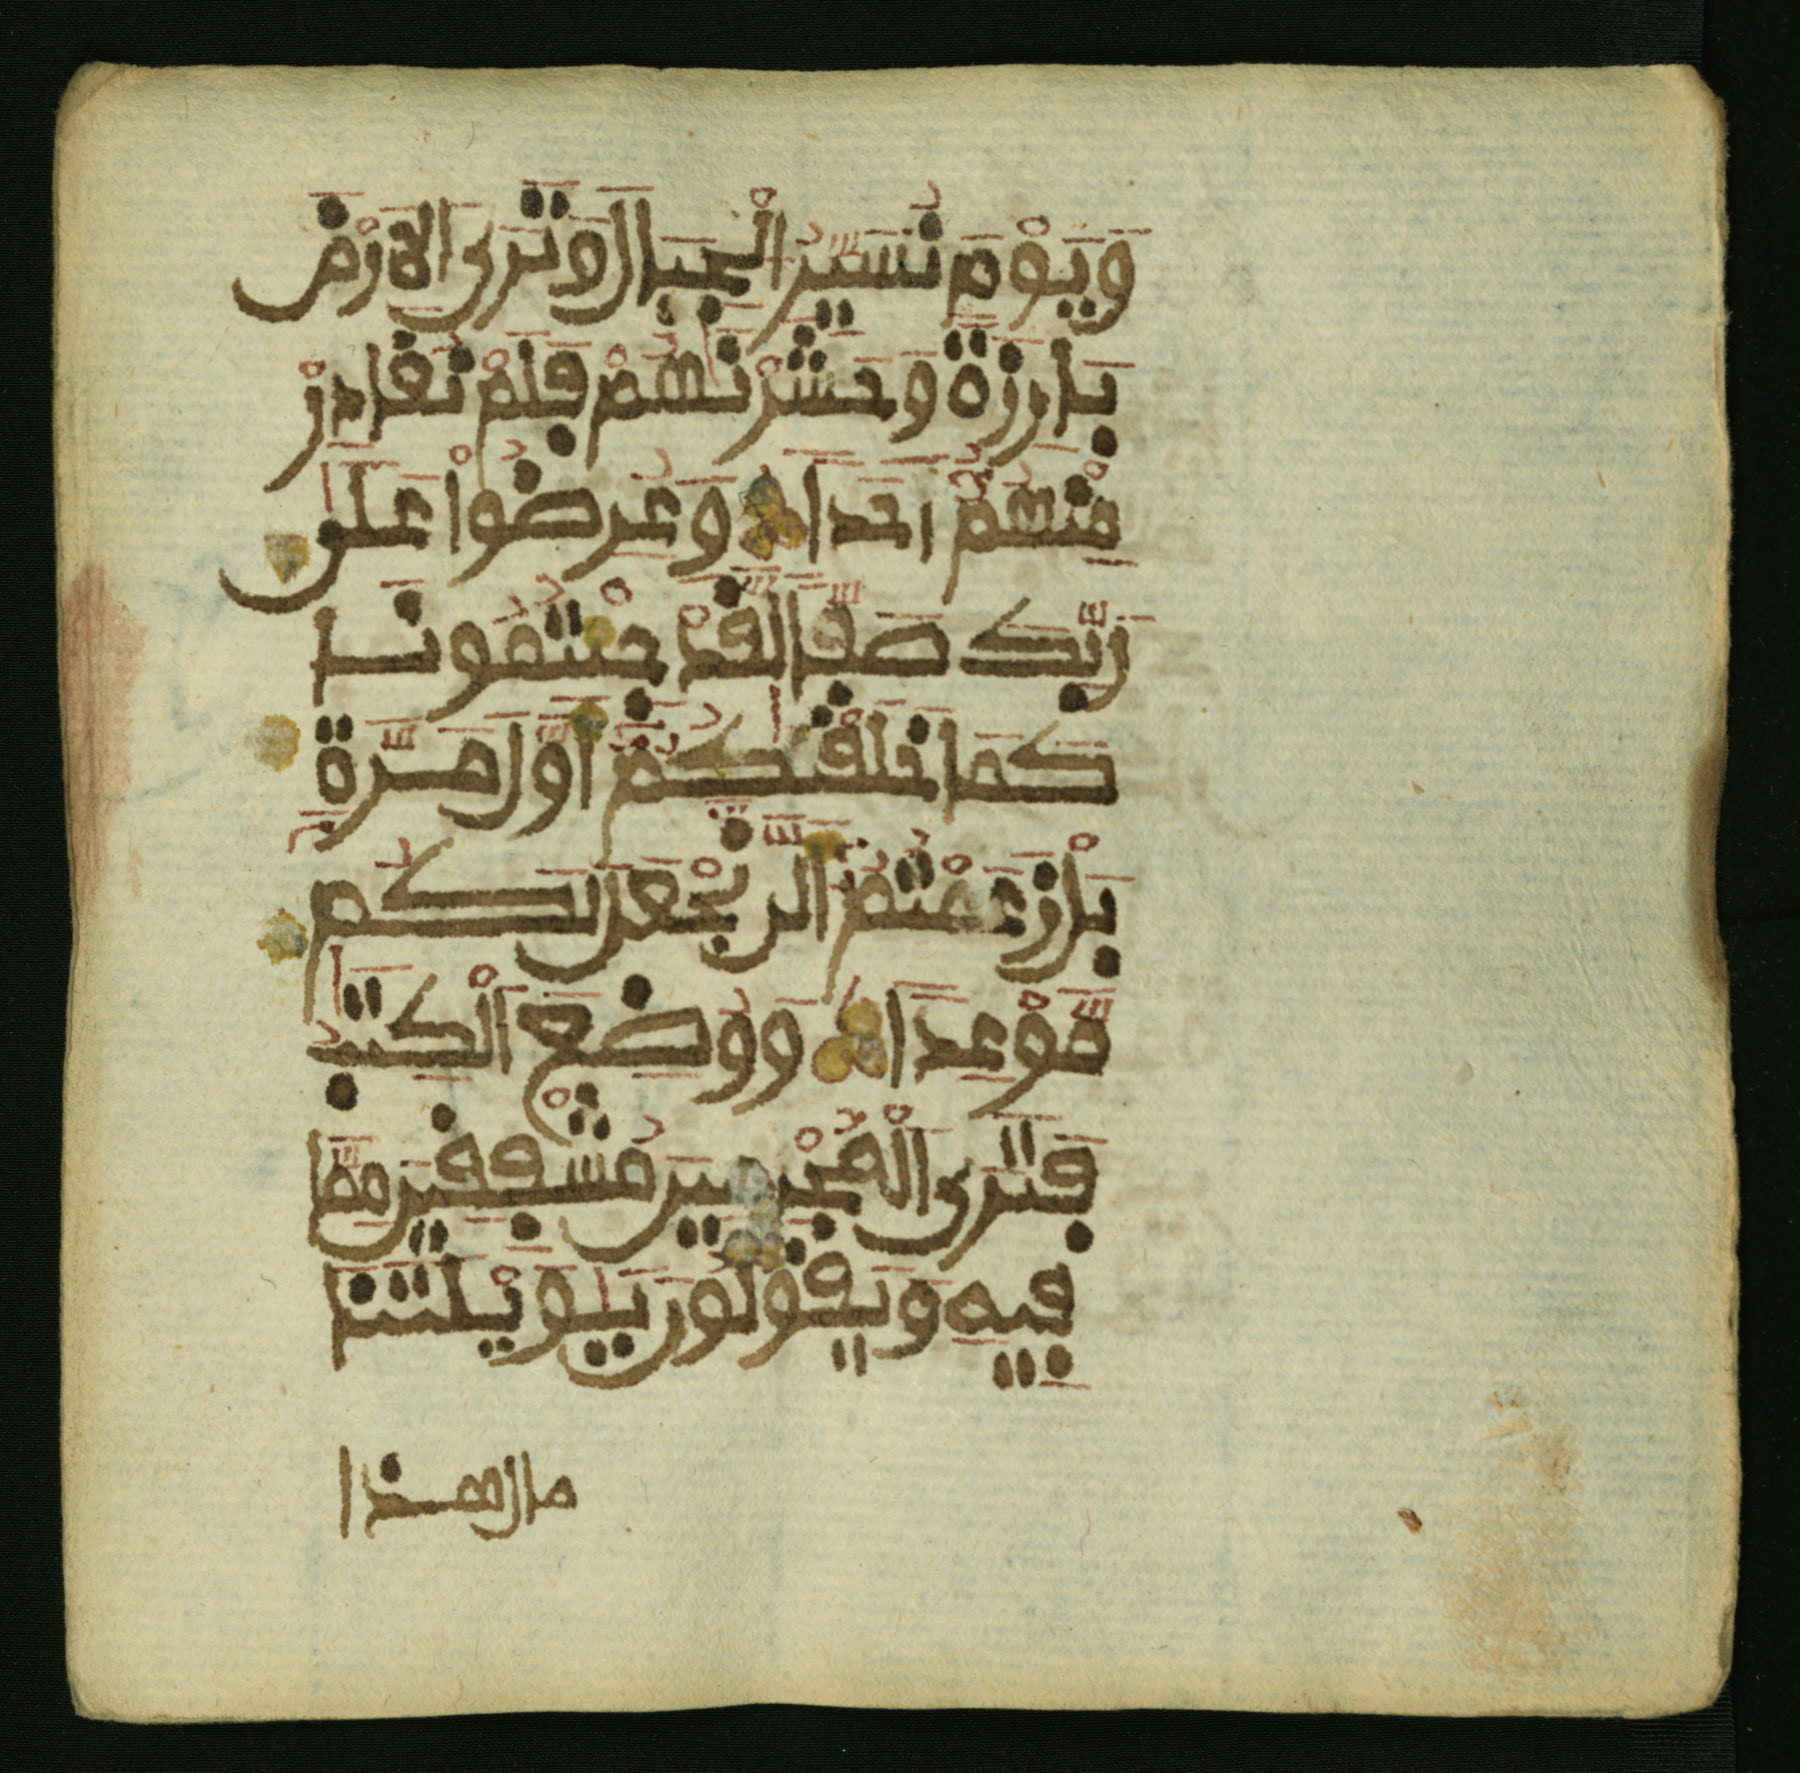 وَيَوْمَ نُسَيِّرُ الْجِبَالَ وَتَرَى الَارْضَ
بَارِزَةً وَحَشَرْنَٰهُمْ فَلَمْ نُغَادِرْ
مِنْهُمُۥ أَحَدًا وَعُرِضُوا عَلَىٰ
رَبِّكَ صَفًّا لَّقَدْ جِئْتُمُونَا
كَمَا خَلَقْنَٰكُمُۥ أَوَّلَ مَرَّةٍ
بَلْ زَعَمْتُمُۥ أَلَّن نَّجْعَلَ لَكُم
مَّوْعِدًا وَوُضِعَ الْكِتَٰبُ
فَتَرَى الْمُجْرِمِينَ مُشْفِقِينَ مِمَّا
فِيهِ وَيَقُولُونَ يَٰوَيْلَتَنَا
مال هذا